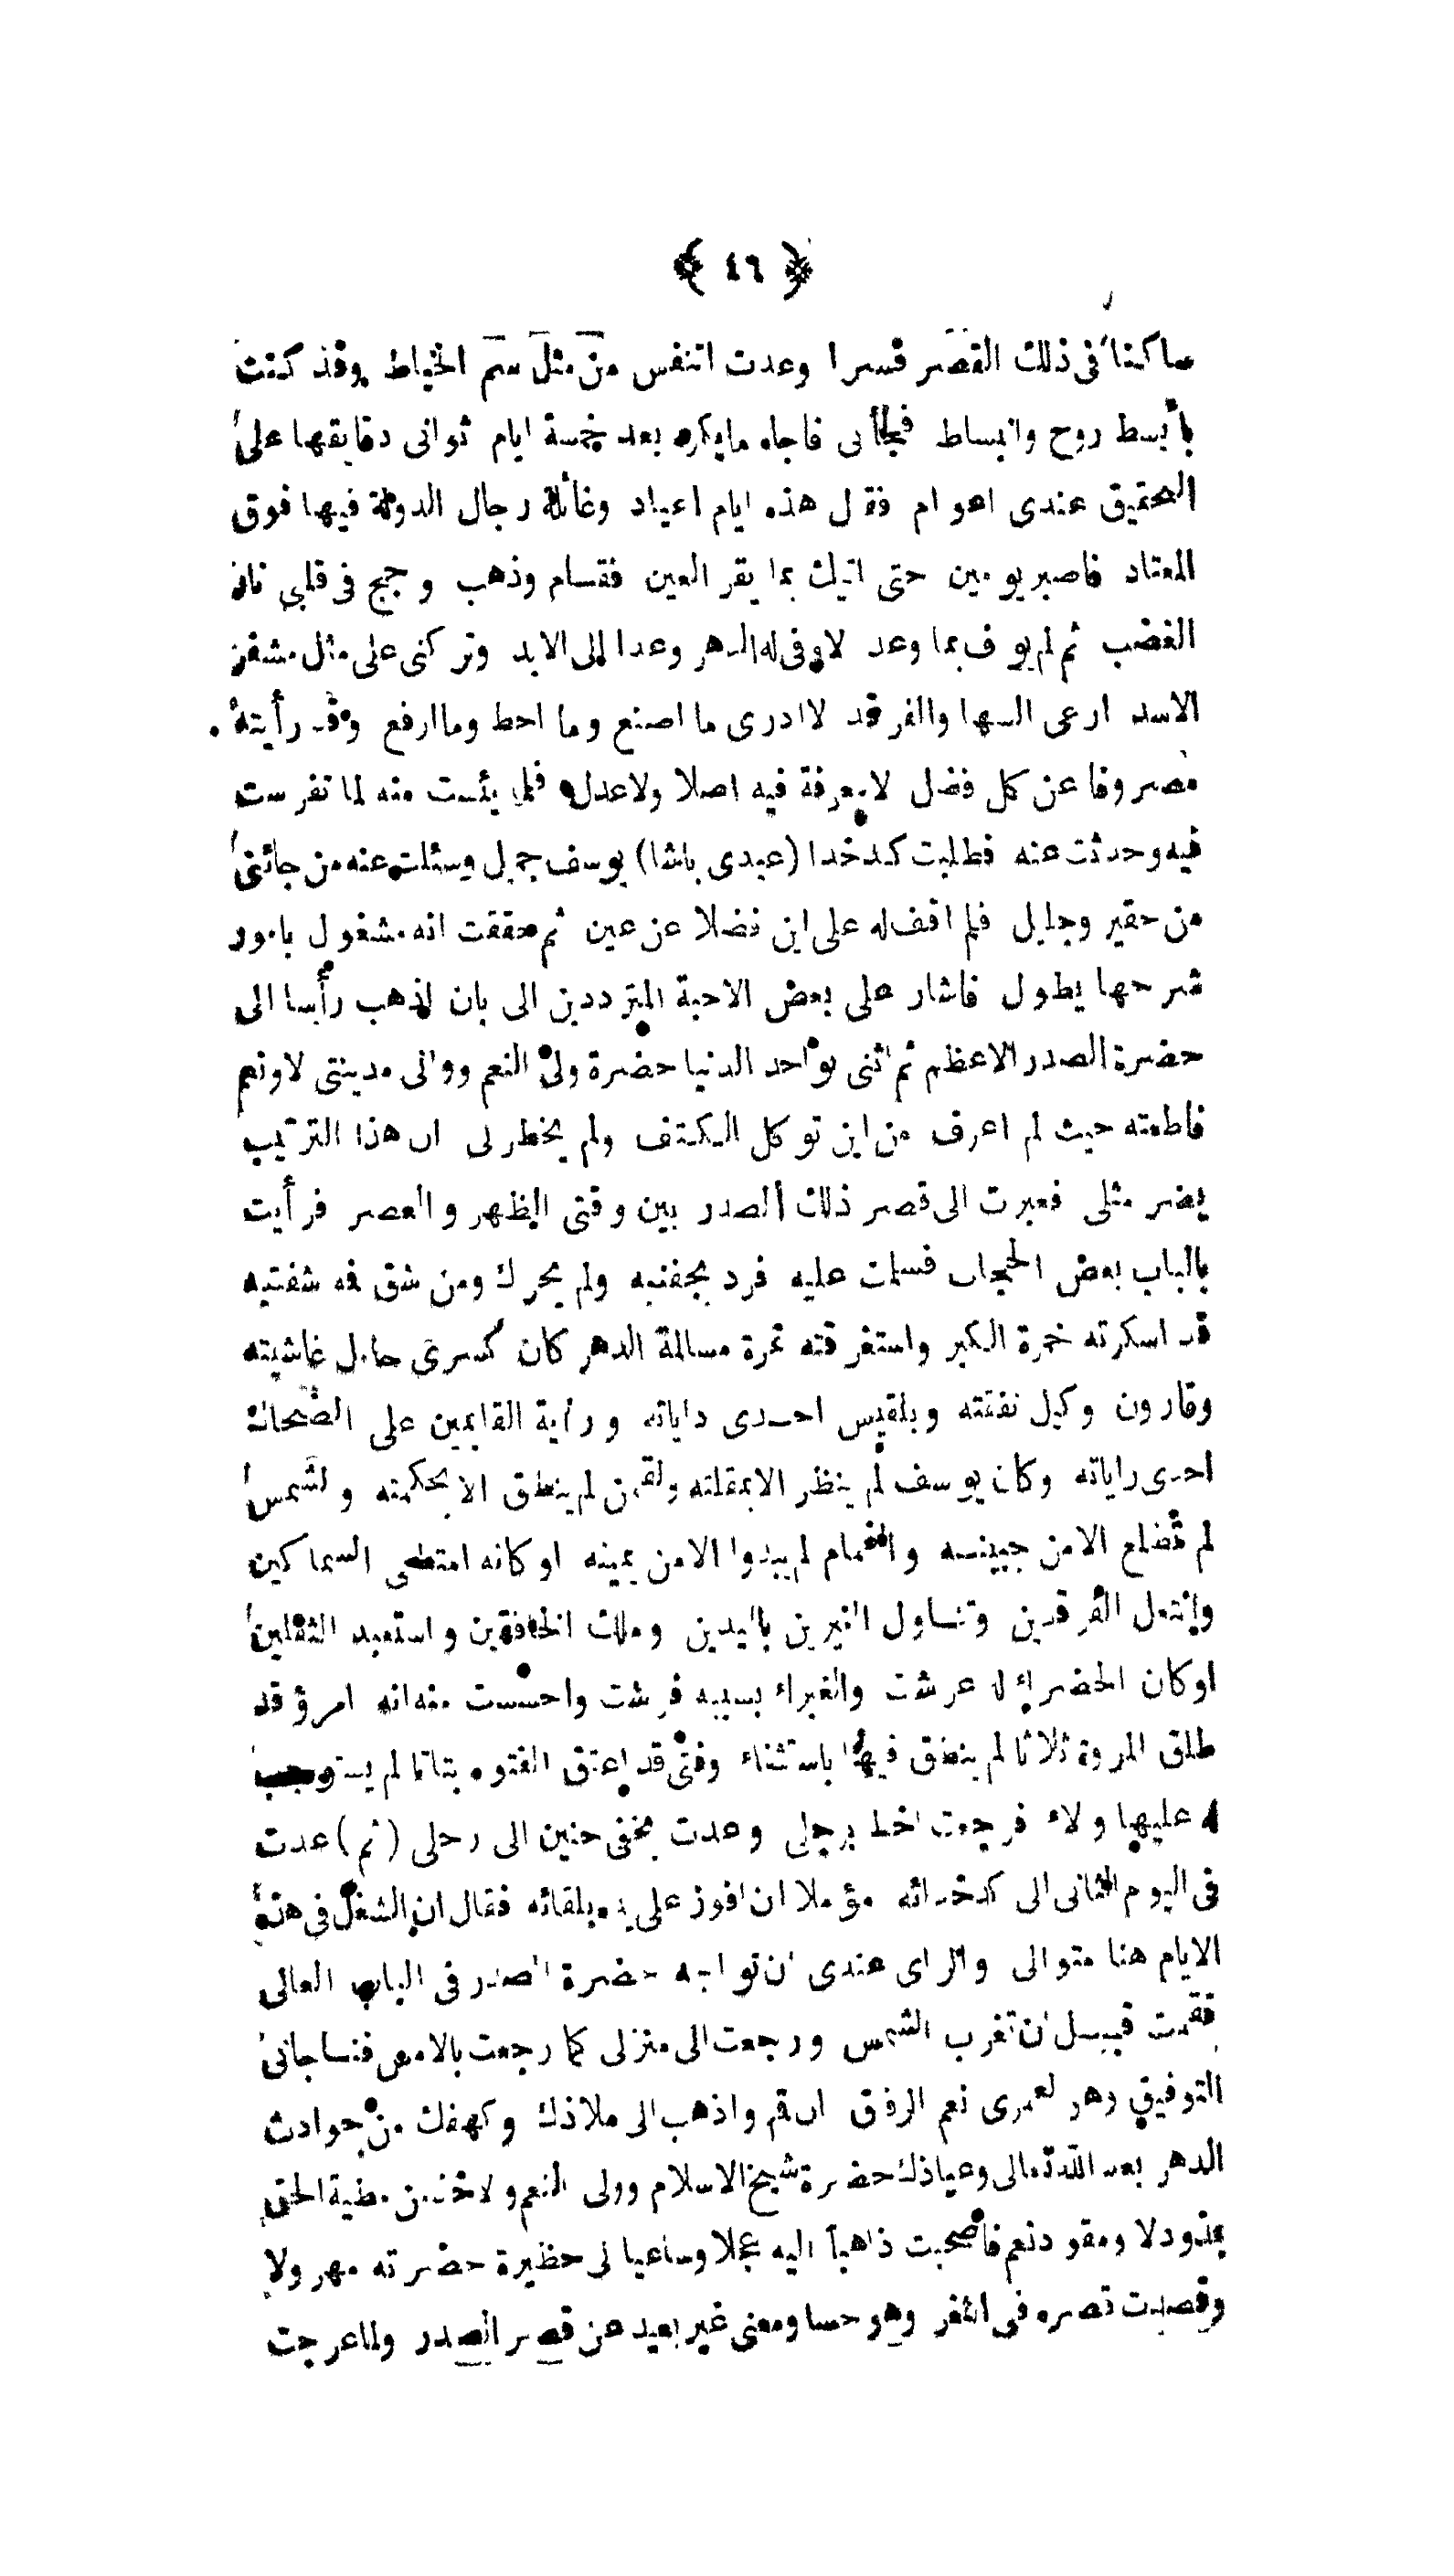 ﴿ ٤٦ ﴾
ساكنا فى ذلك القصر قسرا وعدت اتنفس من مثل سم الخياط وقد كنت
بأبسط روح وانبساط فجاأنى فاجاه مايكره بعد خمسة ايام ثوانى دقايقها على
التحقيق عندى اعوام فقال هذه ايام اعياد وغائلة رجال الدولة فيها فوق
المعتاد فاصبر يومين حتى اتيك بما يقر العين فقام وذهب و فى قلبى نار
الغضب ثم لم يوف بما وعد لا وفى له الدهر وعدا الى الابد وتركنى على مثل مشفر
الاسد ارعى السها والفرقد لا ادرى ما اصنع وما احط وما ارفع وقد رأيته
مصروفا عن كل فضل لا معرفة فيه اصلا ولا عدل فلما يئست منه لما تفرست
فيه وحدثت عنه فطلبت كدخدا (عبدى باشا) يوسف جميل وسئلت عنه من جائنى
من حقير وجليل فلم اقف له على اين فضلا عن عين ثم تحققت انه مشغول بامور
شرحها يطول فاشار على بعض الاحبة المترددين الى بان اذهب رأسا الى
حضرة الصدر الاعظم ثم اثنى بواحد الدنيا حضرة ولى النعم ووالى مدينتى لا ونعم
فاطعته حيث لم اعرف من اين توكل الكتف ولم يخطر لى ان هذا الترتيب
يضر مثلى فعبرت الى قصر ذلك الصدر بين وقتى الظهر والعصر فرأيت
بالباب بعض الحجاب فسلمت عليه فرد بجفنيه ولم يحرك ومن شق فه شفتيه
قد اسكرته خمرة الكبر واستغرقته غمرة مسالمة الدهر كان كسرى حامل غاشيته
وقارون وكيل نفقته وبلقيس احدى داياته وراية القايمين على الضحاك
احدى راياته وكان يوسف لم ينظر الا بمقلته ولقمن لم ينطق الا بحكمته والشمس
لم تطلع الا من جبينه والغمام لم يبدوا الا من يمينه او كانه امتطى السماكين
وانتعل الفرقدين وتناول النيرين باليدين وملك الخافقين واستعبد الثقلين
او كان الخضراء له عرشت والغبراء بسببه فرشت واحسست منه انه امرؤ قد
طلق المروة ثلاثا لم ينطق فيها باستثناء وفتى قد اعتق الفتوه بتاتا لم يستوجب
له عليها ولاء فرجعت اخط برجلى وعدت بخفى حنين الى رحلى (ثم) عدت
فى اليوم الثانى الى كدخدائه مؤملا ان افوز على يده بلقائه فقال ان الشغل فى هذه
الايام هنا متوالى والراى عندى ان تواجه حضرة الصدر فى الباب العالى
فقمت قبيل ان تغرب الشمس ورجعت الى منزلى كما رجعت بالامس فناجانى
التوفيق وهو لعمرى نعم الرفيق ان قم واذهب الى ملاذك وكهفك من حوادث
الدهر بعد الله تعالى وعياذك حضرة شيخ الاسلام وولى النعم و مطية الحق
بمذود لا ومقود نعم فاصحبت ذاهبا اليه عجلا وساعيا الى حظيرة حضرته مهرولا
وقصدت قصره فى الثغر وهو حسا ومعنى غير بعيد عن قصر الصدر ولما عرجت